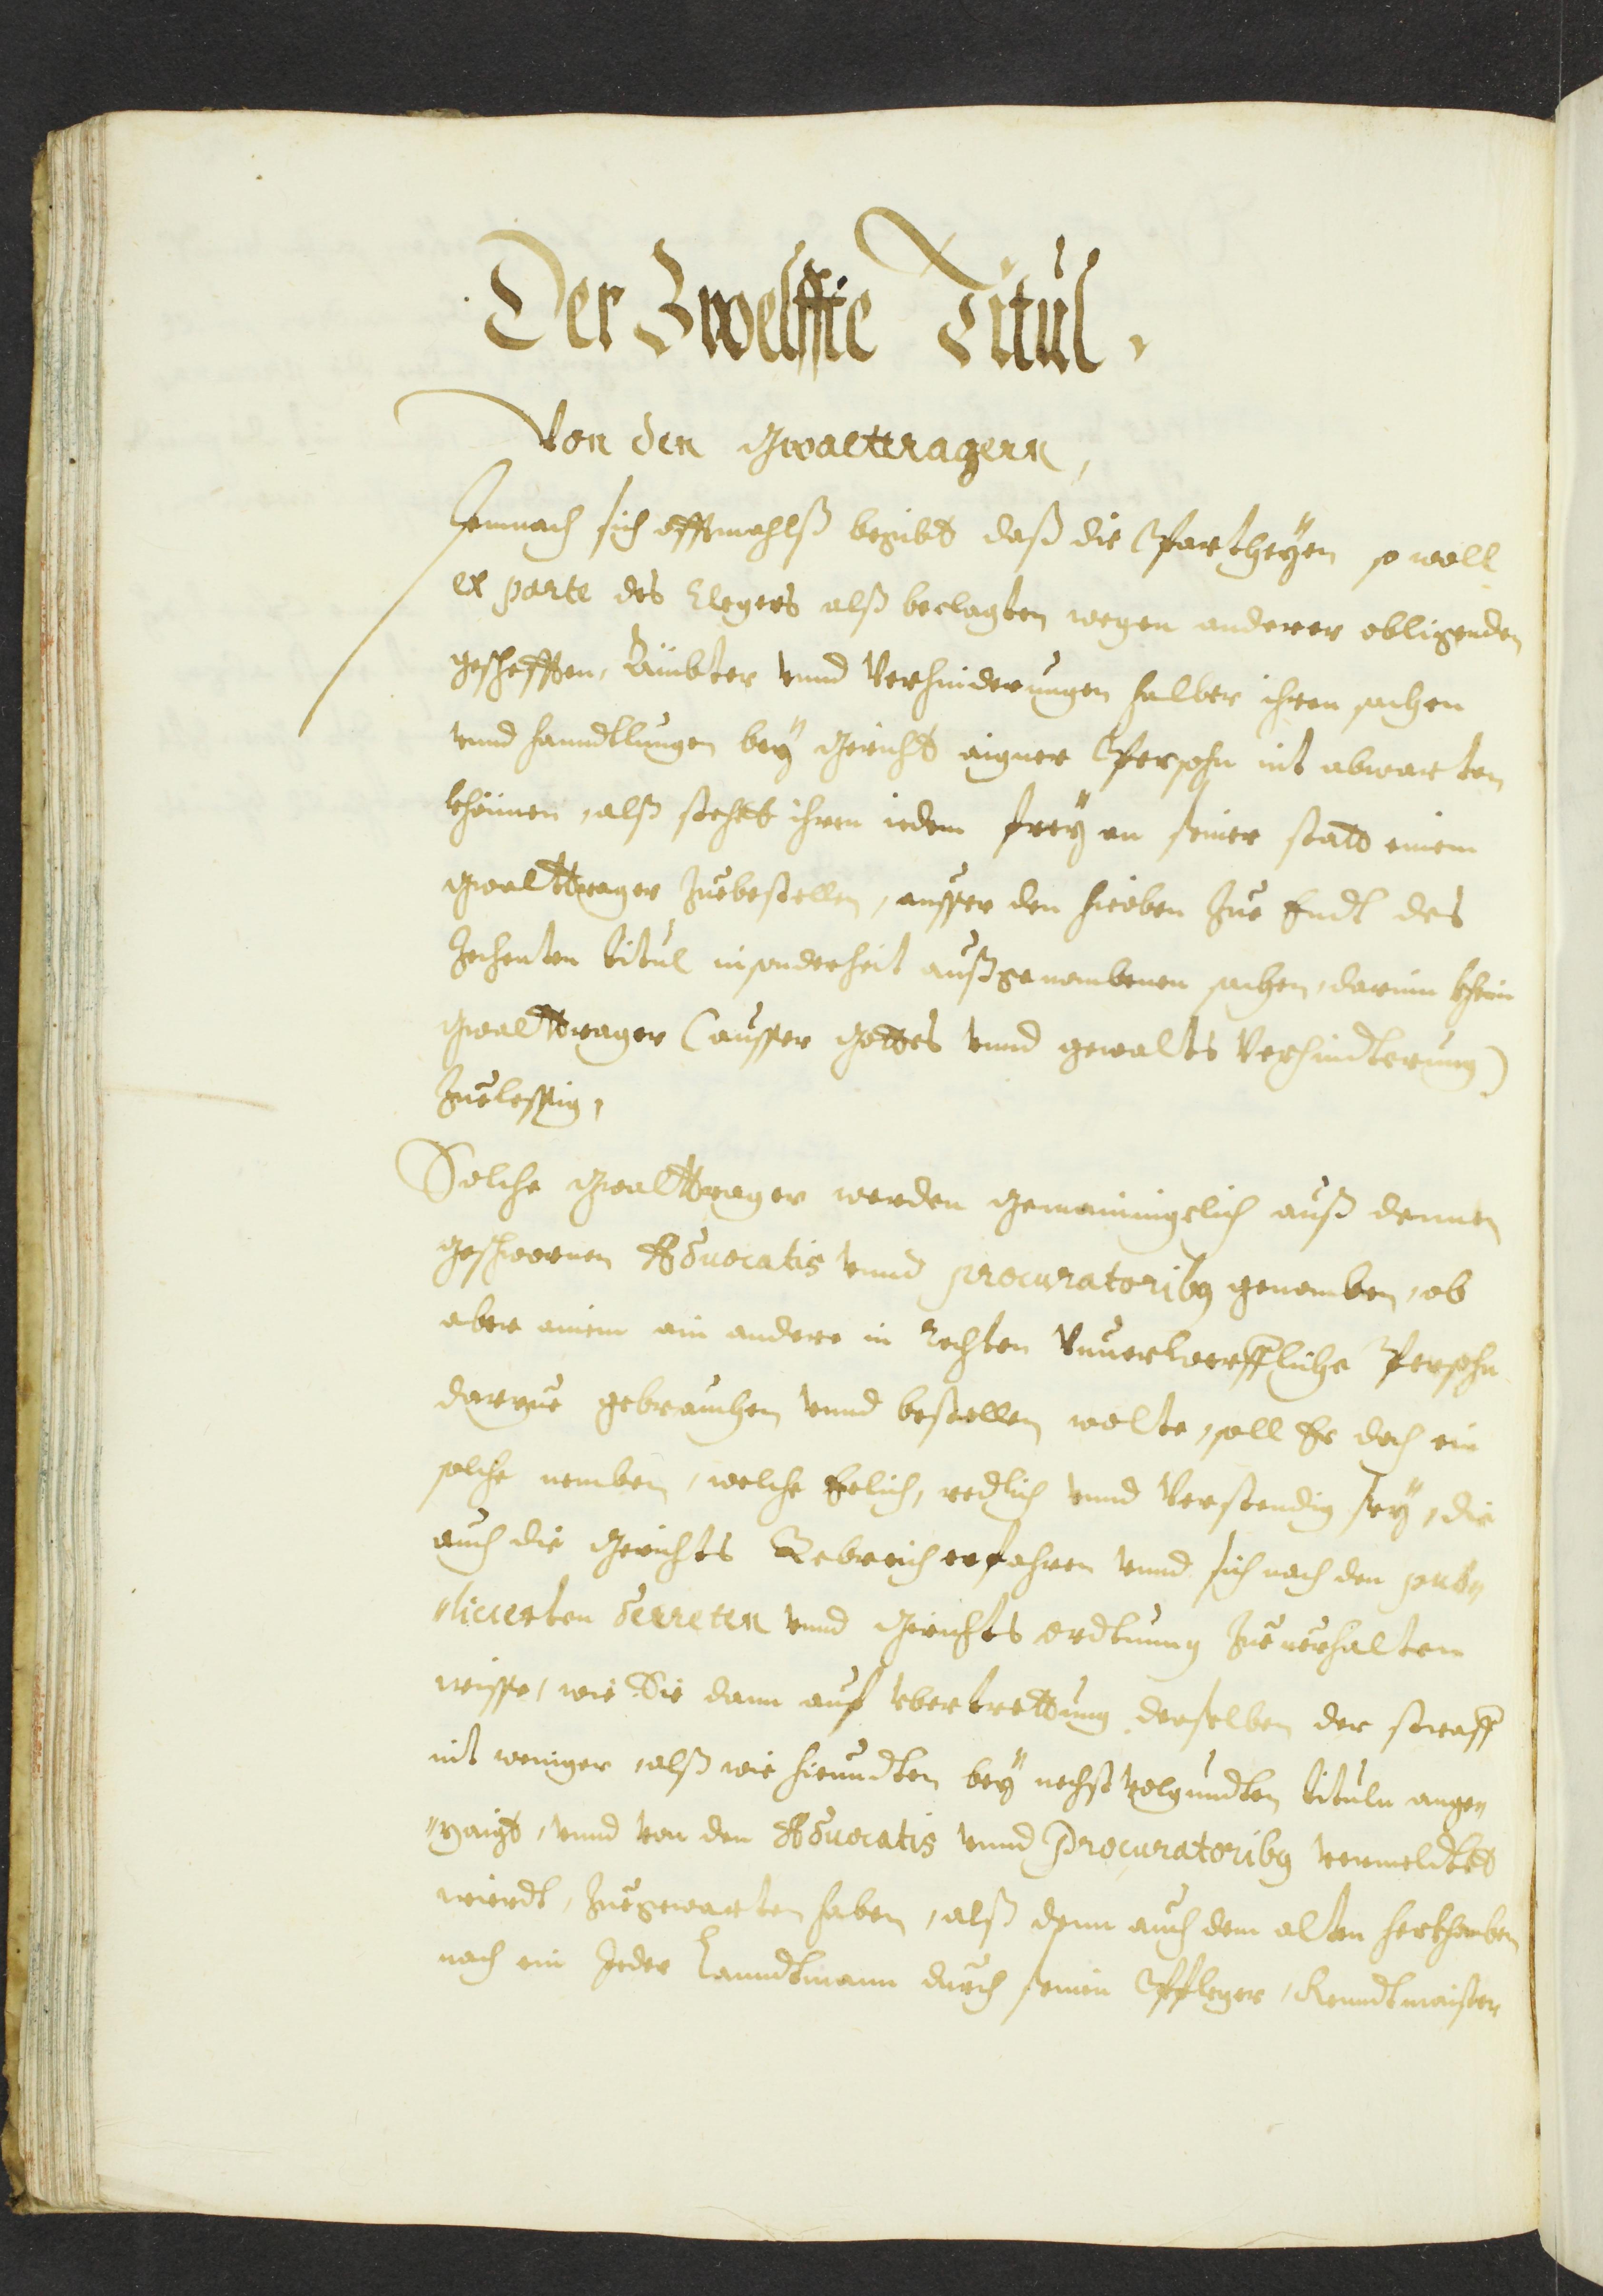 Der Zwelffte Titul.
Von den Gwalttragern,
Demnach sich offtmahlß begibt daß die Partheÿen so woll
ex parte des Clegers alß beclagten wegen anderer obligenden
geschefften, Ämbter vnnd Verhinderungen halber ihren sachen
vnnd hanndtlungen beÿ Gericht aigner Persohn nit abwarten
khönnen, alß stehet ihren iedem freÿ an seiner statt einem
Gwalttrager Zuebestellen, ausser den hieoben Zue Endt des
Zehenten titul insonderheit außgenombenen sachen, darinn khein
Gwalttrager (ausser Gottes vnnd gewalts Verhindterung)
Zuelessig,
Solche Gwalttrager werden gemainingelich auß dennen
geschwornen Aduocatis vnnd procuratoribus genomben, ob
aber einem ein andere in Rechten Vnuerwerffliche Persohn
darzue gebrauchen vnnd bestellen wolte, soll Er doch ein
solche nemben, welche Erlich, redlich vnnd Verstendig seÿ, die
auch die Gerichts Gebreich erfahren vnnd sich nach den pub„
„licierten decreten vnnd Gerichts ordtnung Zue uerhalten
wisse, wie Sie dann auf vbertrettung derselben der straff
nit weniger, alß wie hieundten beÿ nechst volgundten tituln ange„
„zaigt, vnnd von den Aduocatis vnnd Procuratoribus vermeldtet
wierdt, Zuegewarten haben, alß denn auch dem alten herkhomben
nach ein Jeder Lanndtmann durch seinen Pfleger, Renndtmaister